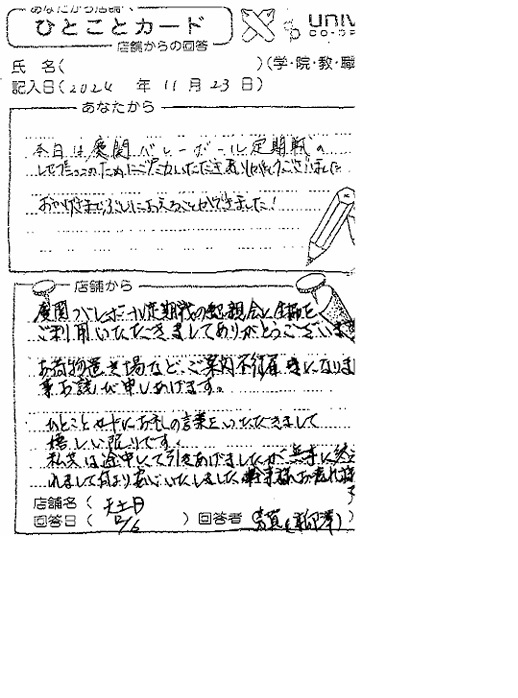 あなたから店舗へ
ひとことカード
店舗からの回答
UNIV
CO-OP
氏 名( )(学・院・教・職
記入日(2024 年 11 月 23 日)
あなたから
今日は慶関バレーボール定期戦の
ためにご いただきありがとうございました
おかげさまで ぶじに ことができました!
店舗から
慶関バレーボール定期戦の懇親会に 店を
ご利用いただきましてありがとうございま
お荷物置き場など、ご案内不行届きになりま
事お詫び申しあげます。
ひとことカードにお礼の言葉をいただきまして
嬉しい限りです。
私共は途中にて引きあげましたが、無事に終え
れまして何より いたしました。幹事様お疲れ様
店舗名(
回答日( 12/6 )回答者